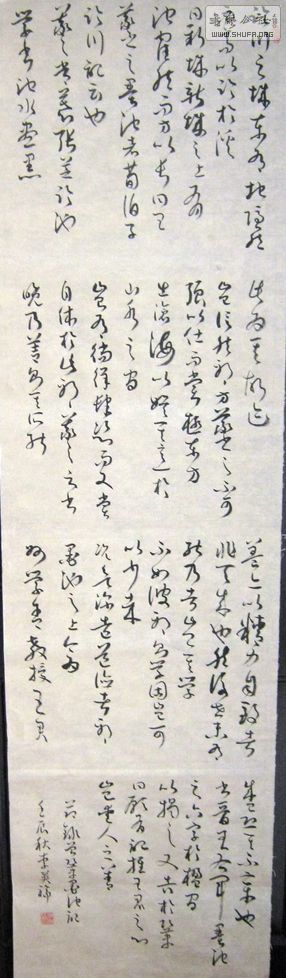 臨川之城東有地隱然
而高以臨於溪
曰新城新城之上有
池窪然而方以長曰王
羲之之墨池者荀伯子
臨川記云也
羲之嘗慕張芝臨池
學書池水盡黑
此為其故迹
豈信然邪方羲之之不可
強以仕而嘗極東方
出滄海以娛其意於
山水之間
豈有徜徉肆恣而又嘗
自休於此邪羲之之書
晚乃善則其所能
蓋亦以精力自致者
非天成也然後世未有
能及者豈其學
不如彼邪則學固豈可
以少哉
況欲深造道德者邪
墨池之上今為
州學舍教授王君
盛恐其不章也
書晉王右軍墨池
之六字於楹間
以揭之又告於鞏
曰願有記推王君之心
豈愛人之善
節錄曾鞏墨池記
壬辰秋李英
WWW.SHUFA.ORG